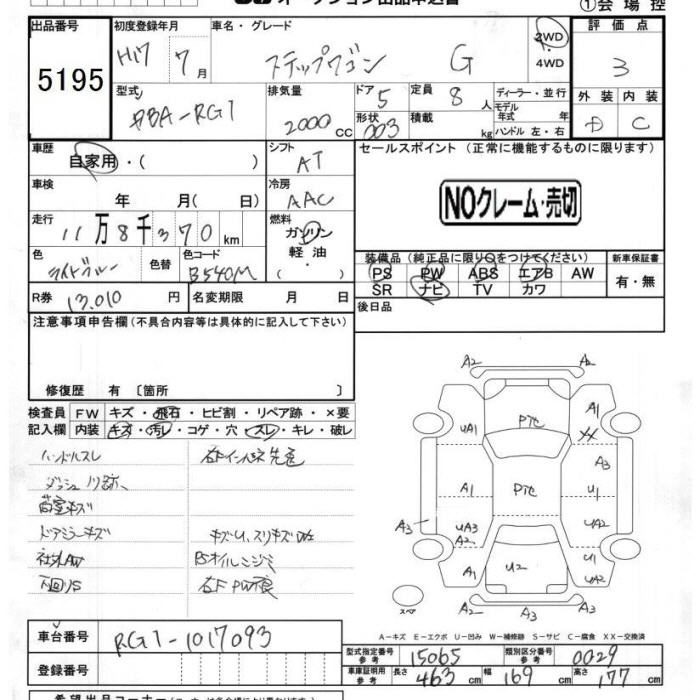 ①会場控
出品番号
5195
初度登録年月
H17 7月
車名・グレード
ステップワゴン G
2WD
・
4WD
評価点
3
型式
DBA-RG1
排気量
2000 CC
ドア
5
形状
003
定員
8 人
積載
kg
ディーラー・並行
モデル
年式 年
ハンドル 左・右
外装 内装
D C
車歴
自家用・( )
シフト
AT
セールスポイント (正常に機能するものに限ります)
NOクレーム・売切
車検
年 月( 日)
冷房
AAC
走行
11万8千370km
燃料
ガソリン
軽油
( )
色
ライトブルー
色替
色コード
B540M
装備品(純正品に限り○をつけてください)
PS PW ABS エアB AW
SR ナビ TV カワ
新車保証書
有・無
R券 13,010 円
名変期限 月 日
後日品
注意事項申告欄(不具合内容等は具体的に記入して下さい)
修復歴 有 〔箇所 〕
検査員 FW キズ・飛石・ヒビ割・リペア跡・×要
記入欄 内装 キズ・汚レ・コゲ・穴・スレ・キレ・破レ
ハンドルスレ
ダッシュ
荷室キズ
ドアミラーキズ
社外AW
下回りS
キズU、スリキズ
PSオイルニジミ
右F PW不良
A2 A2
Pて
UA1 A1
XX
A3
A1 Pて U1
UA3 UA2
A2
A3
A1 U2 U1
UA2
A3 A3
スペア
A-キズ E-エクボ U-凹み W-補修跡 S-サビ C-腐食 XX-交換済
車台番号
RG1-1017093
登録番号
型式指定番号
参考
15065
類別区分番号
参考
0029
車庫証明用
参考
長さ 463 cm
幅 169 cm
高さ 177 cm